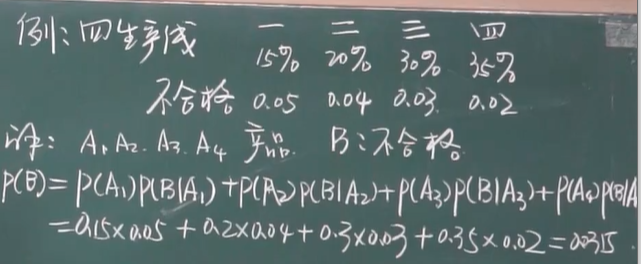 例:四生产线 一 二 三 四
15% 20% 30% 35%
不合格 0.05 0.04 0.03 0.02
A₁ A₂ A₃ A₄ 产品 B:不合格
P(B)=P(A₁)P(B|A₁)+P(A₂)P(B|A₂)+P(A₃)P(B|A₃)+P(A₄)P(B|A
=0.15×0.05+0.2×0.04+0.3×0.03+0.35×0.02=0.0315